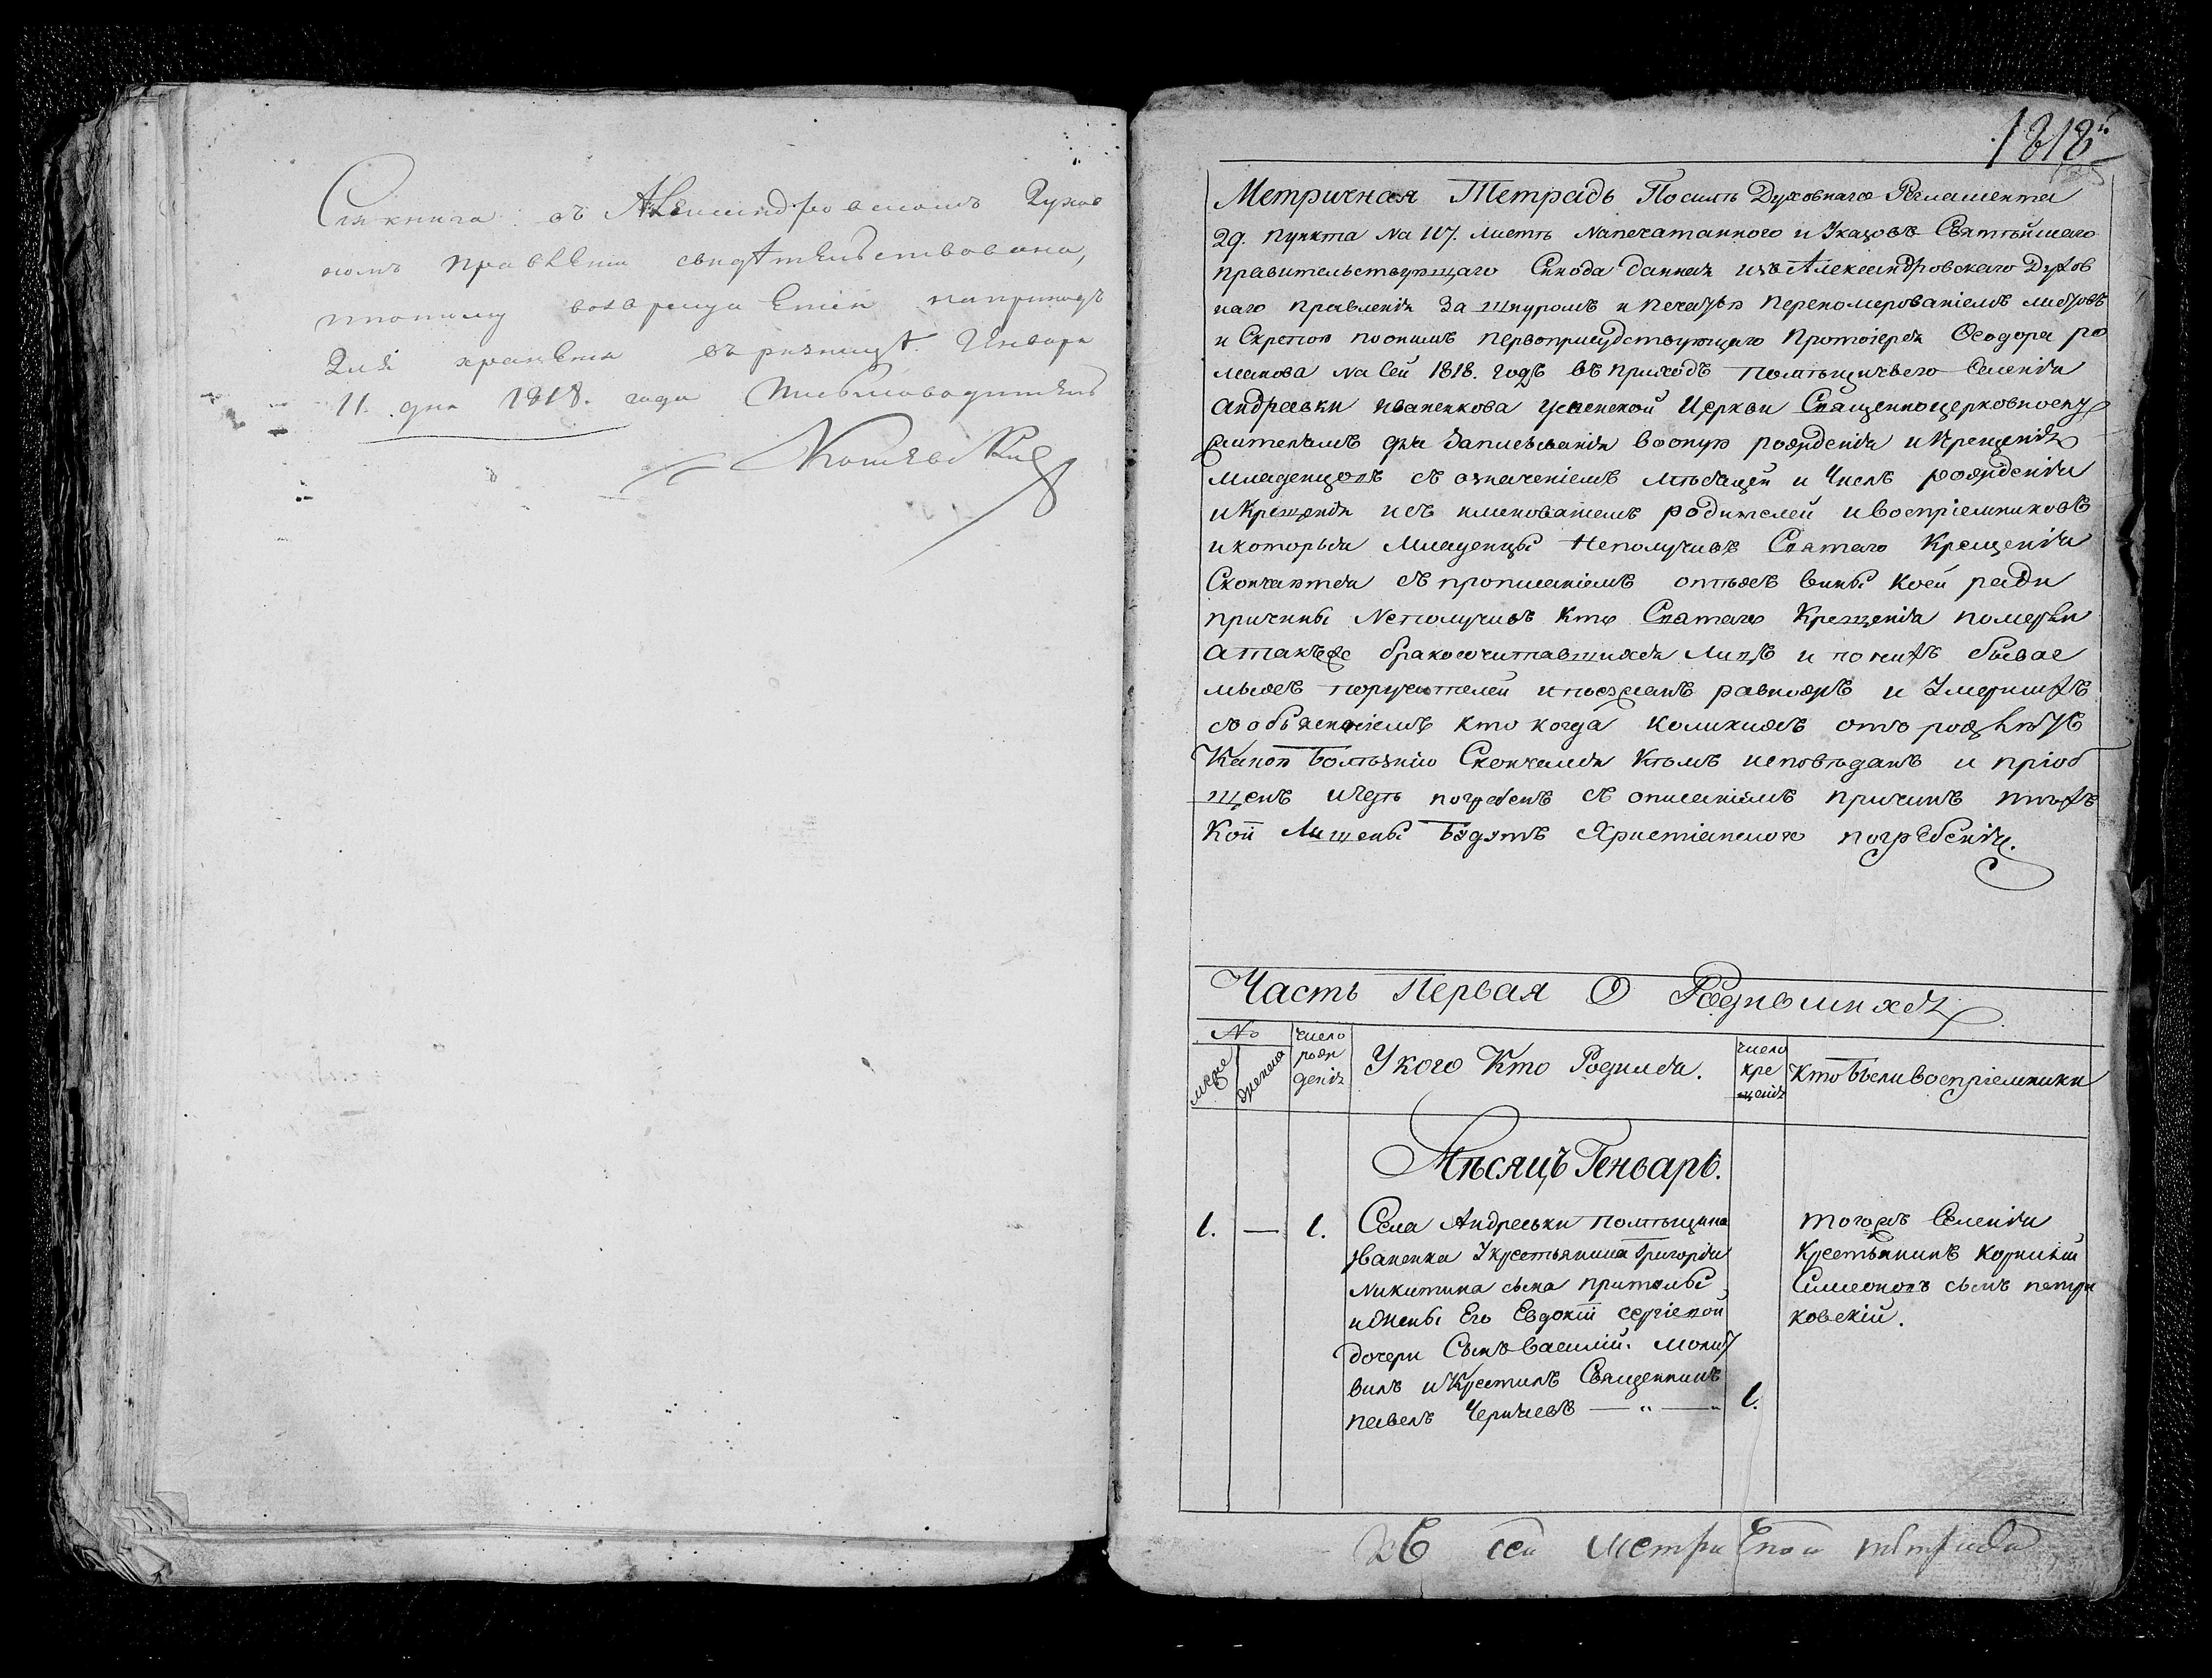 Сія книга въ Александровскомъ Духов
номъ правленіи свидѣтельствована,
по тому возвращается на приходъ
Для храненія въ ризницѣ. Генваря
11. дня 1818. года Письмоводитель
1818й
Метричная Тетрадь По силѣ Духовнаго Регламента
29. пункта На 117. листѣ Напечатанного и Указовъ Святѣйшаго
правительствующаго Синода данная изъ Александровскаго Духов
наго правленія За шнуромъ и печатью перенумерованіемъ листовъ
и Скрепою по онымъ первоприсудствующаго Протоіерея Ѳеодора Ро
манова На Сей 1818. годъ въ приходъ помѣщичьего Селенія
Андреевки Иваненкова Успенской Церкви Священноцерковнослу
жителямъ для Записыванія во оную рожденія и Крещенія
младенцовъ съ означеніемъ мѣсяцей и Числъ рожденія
и Крещенія и съ именованіемъ родителей и воспріемниковъ
и которыя Младенцы Неполучивъ Святаго Крещенія
Скончаются съ прописаніемъ оттоежъ вины Коей ради
причины Неполучивъ кто Святаго Крещенія померли
а такъже бракосочитавшихся Лицъ и по нихъ бывае
мыхъ поручителей и поезжанъ равножъ и Умершихъ
съ объясненіемъ кто когда коликихъ отъ родѣ лѣтъ
Какою Болѣзнію Скончался Кѣмъ исповѣданъ и пріоб
щенъ и гдѣ погребенъ съ описаніемъ причинъ тѣхъ
Кои Лишены Будутъ Христіанского погребенія.
Часть Первая О Родившихся
№
муже
женска
число
рож
денія
У кого Кто Родился.
число
кре
щенія
Кто Были воспріемники
Мѣсяцъ Генварь.
1. — 1. Села Андреевки помѣщика
Иваненка У крестьянина Григорія
Никитина сына Притолы
и Жены Его Евдокіи Сергіевой
дочери Сынъ Василій. Молит
вилъ и Крестилъ Священникъ
Павелъ Чернявъ — „ — 1.
тогожъ Селенія
Крестьянинъ Корнилій
Симеоновъ сынъ петри
ковскій.
Въ сей метричной тетради